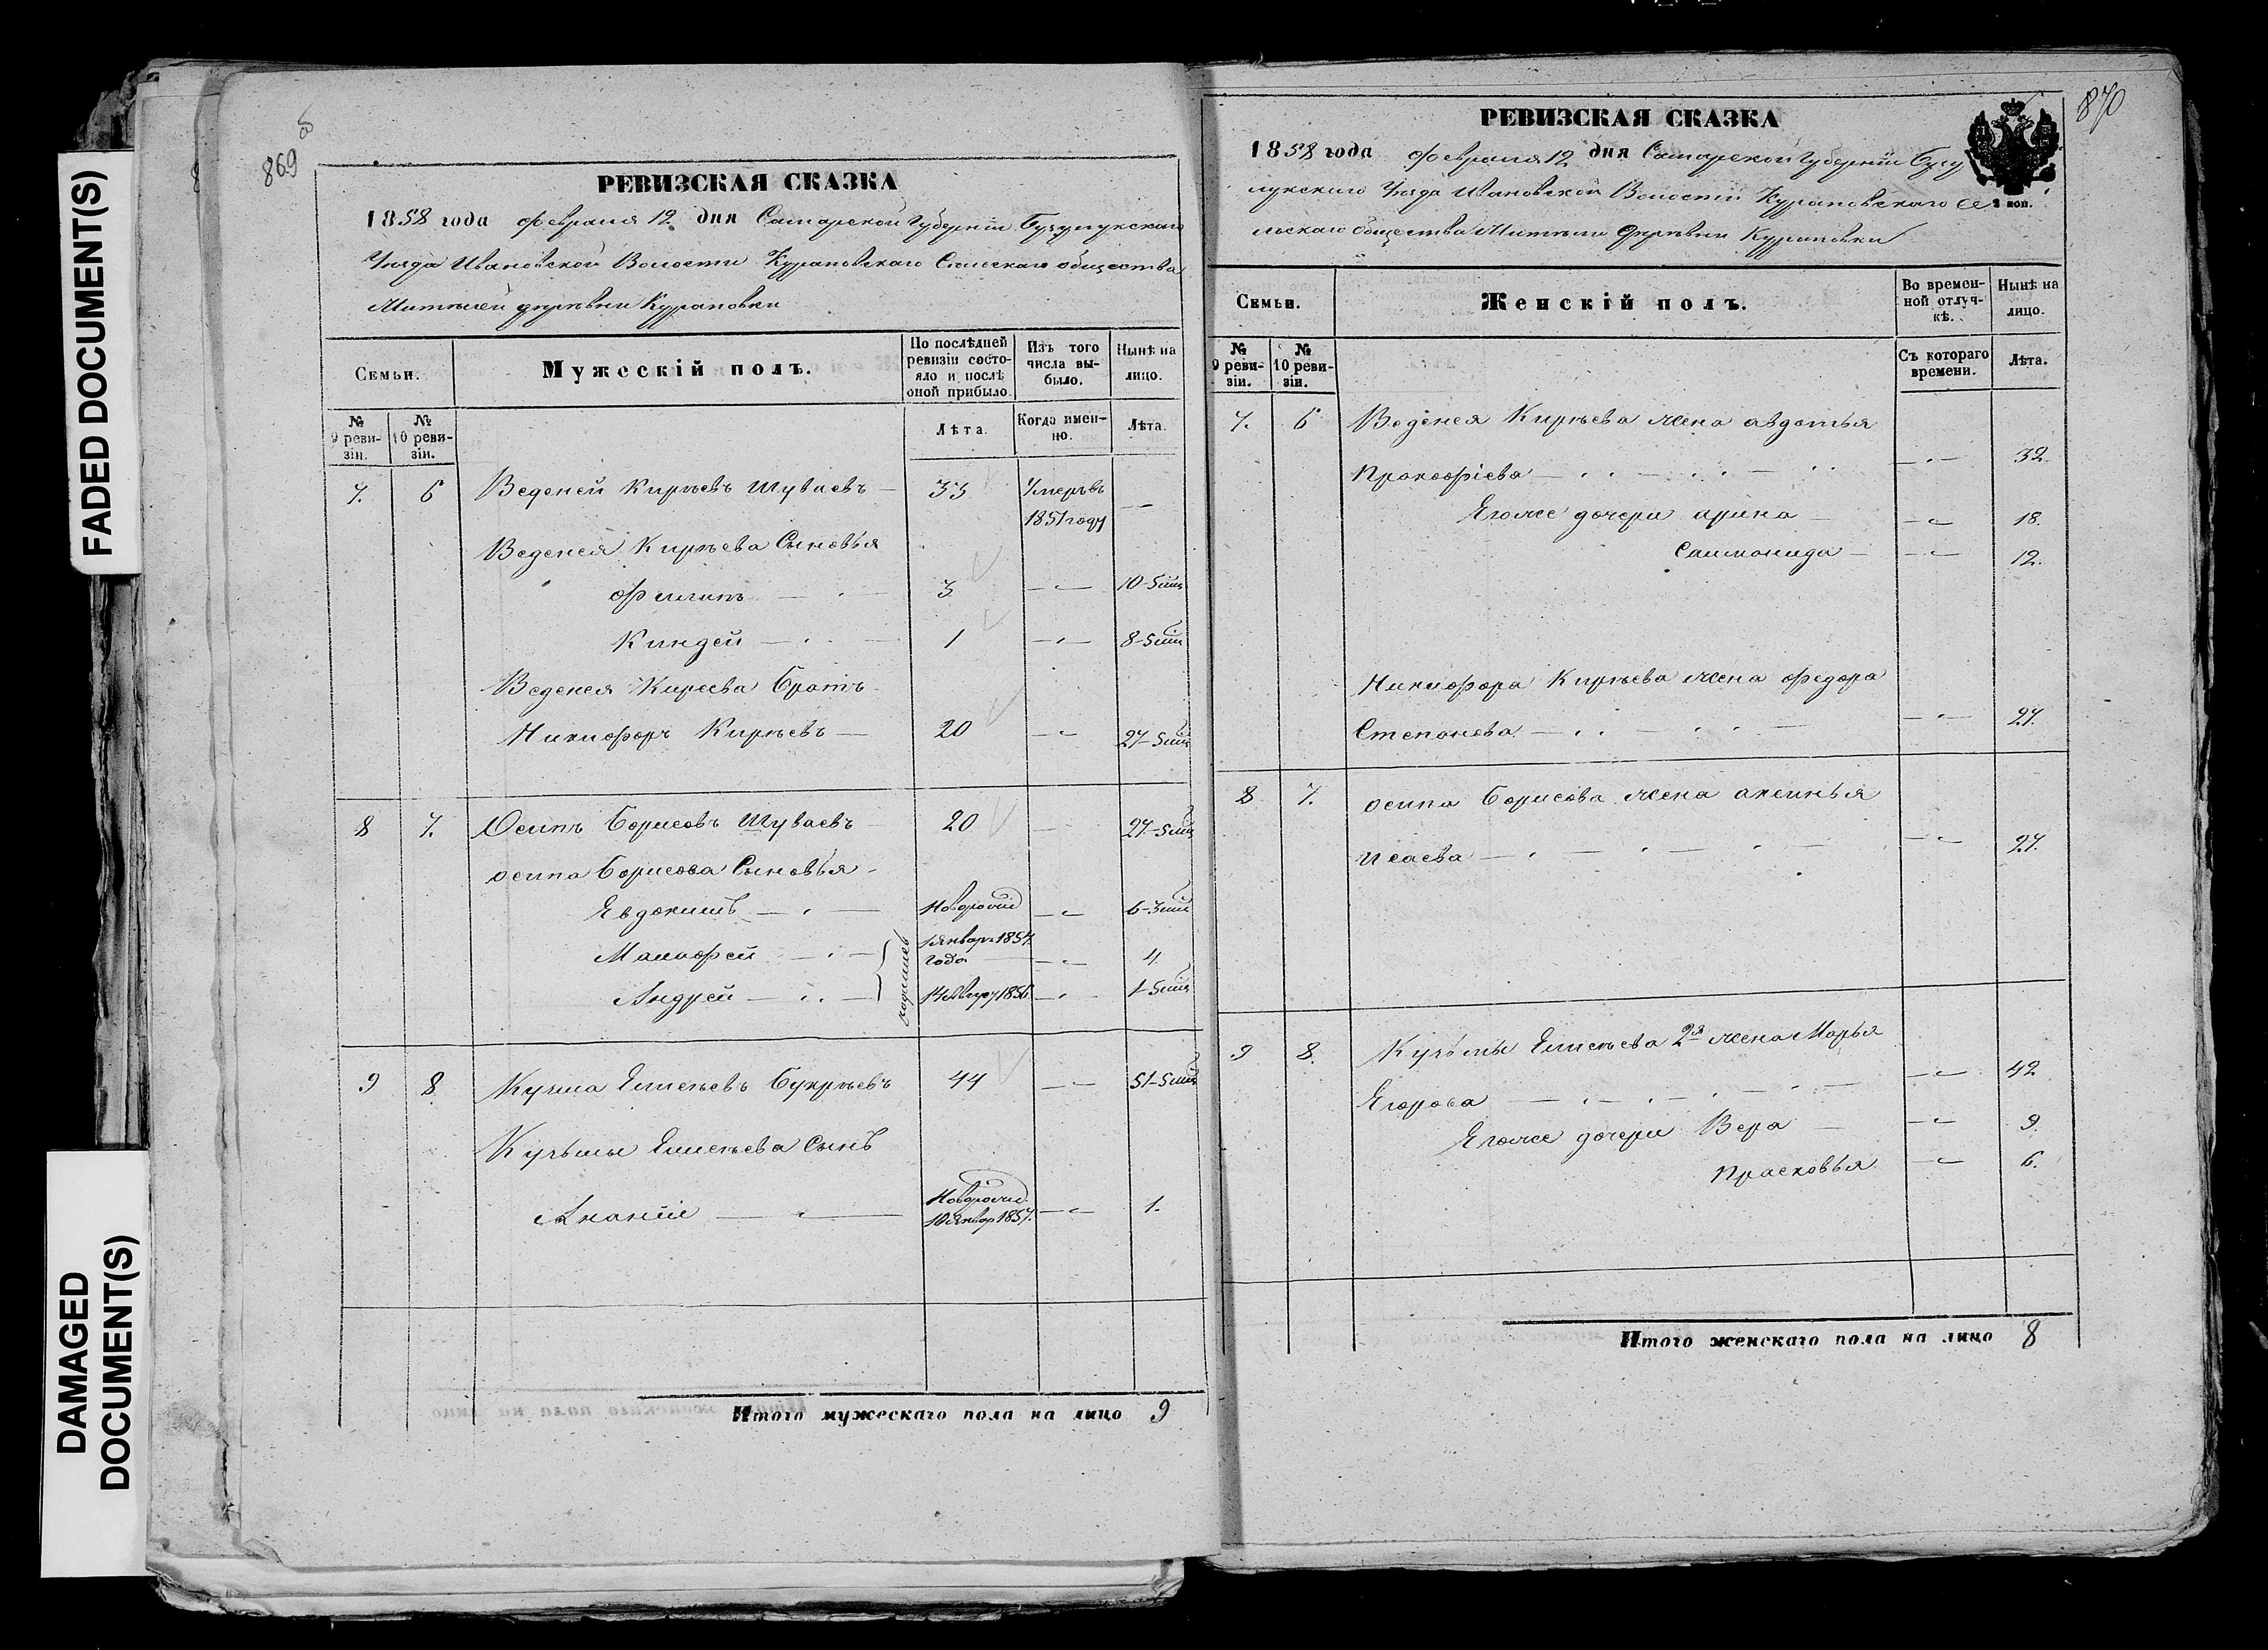 FADED DOCUMENT(S)
DAMAGED
DOCUMENT(S)
869
РЕВИЗСКАЯ СКАЗКА
1858 года февраля 12 дня Самарской Губерніи Бузулукскаго
Уезда Ивановской Волости Курановскаго Сельскаго общества
деревни Курановки
Семьи.
Мужескій полъ.
По послѣдней ревизіи состояло и послѣ оной прибыло.
Изъ того числа выбыло.
Нынѣ на лицо.
№ 9 ревизіи.
№ 10 ревизіи.
Лѣта.
Когда именно.
Лѣта.
7. 6 Веденей Кирѣевъ Шуваевъ — 33 Умеръ въ —
1851 году
Веденея Кирѣева Сыновья
Филипъ 3 10-5
Киндей 1 8-5
Веденея Киреева Братъ
Никифоръ Кирѣевъ — 20 27-5
8 7. Осипъ Борисовъ Шуваевъ 20 27-5
осипа Борисова Сыновья
Евдокимъ 6-3
Малафей 1 январ 1854. 4.
года
Андрей 14 Август 1856 1-5
9 8. Кузма Емельевъ Букрѣевъ 44 51-5
Кузьмы Емельева Сынъ
Ананій Новорожд. 1.
10 январ 1857.
Итого мужескаго пола на лицо 9
870
РЕВИЗСКАЯ СКАЗКА
1858 года февраля 12 дня Самарской Губерніи Бузу
лукскаго Уезда Ивановской Волости Курановскаго Се
льскаго общества деревни Курановки
коп.
Семьи.
Женскій полъ.
Во временной отлучкѣ.
Нынѣ на лицо.
№ 9 ревизіи.
№ 10 ревизіи.
Съ котораго времени.
Лѣта.
7. 6 Веденея Кирѣева жена авдотья
Прокофіева 32.
Егоже дочери арина 18.
Саломонида 12.
Никифора Кирѣева жена федора
Степанова 27.
8 7. осипа Борисова жена аксинья
исаева 27.
9 8. Кузьмы Емельева 2я жена Марья
Егорова 42
Егоже дочери Вера 9.
прасковья 6.
Итого женскаго пола на лицо 8